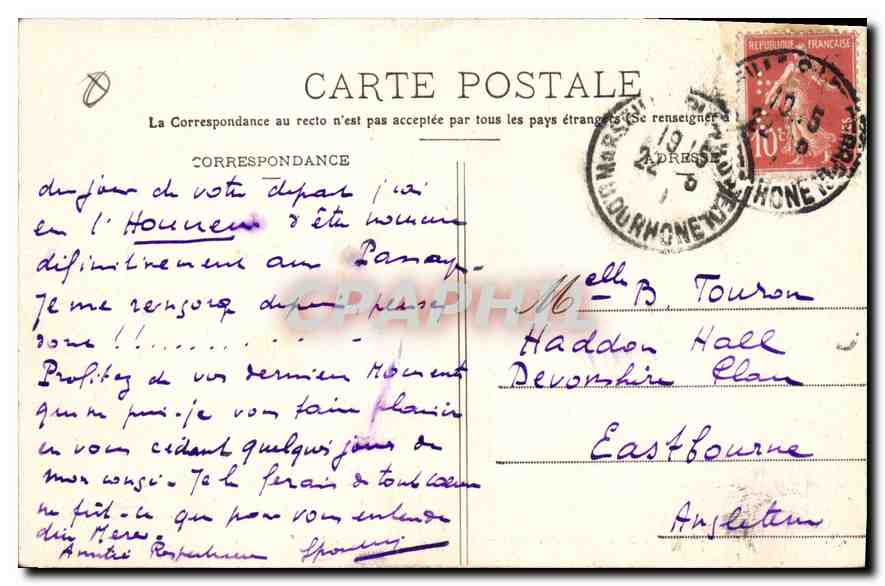 CARTE POSTALE
La Correspondance au recto n'est pas acceptée par tous les pays étrangers (Se renseigner à
CORRESPONDANCE
ADRESSE
REPUBLIQUE FRANÇAISE
10c
MARSEILLE
B. DU RHONE
19
22 6
du jour de votre depart j'ai
eu l'Honneur d'être nommé
définitivement au
Je me rengorge depuis pensez
donc !!.........
Profitez de vos derniers Moments
que ne puis-je vous faire plaisir
en vous cédant quelques jours de
mon congé - Je le ferais de tout coeur
ne fût-ce que pour vous entendre
dire Merci.
Amitié Respectueuse
Melle B. Touron
Haddon Hall
Devonshire
Eastbourne
Angleterre
CPAPHIL